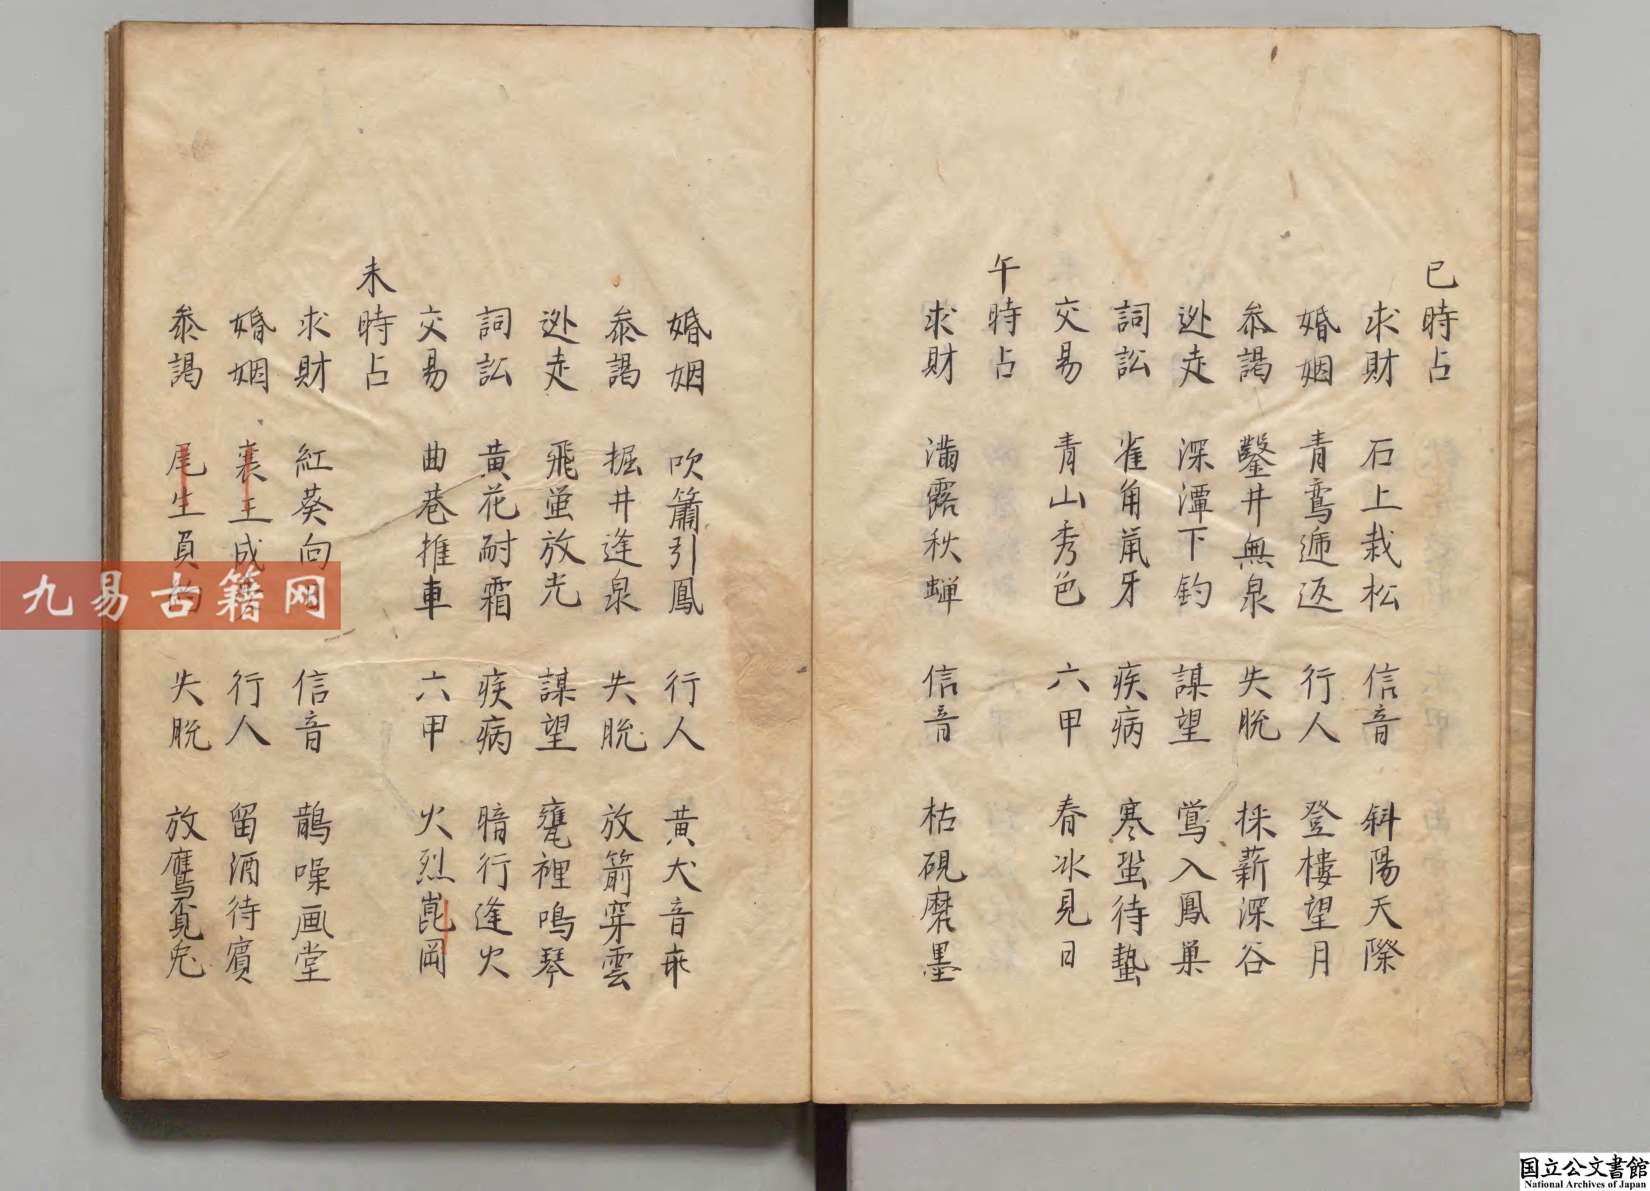 巳時占
求財 石上栽松 信音 斜陽天際
婚姻 青鸞逓返 行人 登樓望月
叅謁 鑿井無泉 失脫 採薪深谷
逃走 深潭下釣 謀望 鶯入鳳巢
詞訟 雀角鼠牙 疾病 寒蛩待蟄
交易 青山秀色 六甲 春冰見日
午時占
求財 滿露秋蟬 信音 枯硯磨墨
婚姻 吹簫引鳳 行人 黃犬音乖
叅謁 掘井逢泉 失脫 放箭穿雲
逃走 飛螢放光 謀望 甕裡鳴琴
詞訟 黃花耐霜 疾病 暗行逢火
交易 曲巷推車 六甲 火烈崑岡
未時占
求財 紅葵向 信音 鵲噪画堂
婚姻 襄王成 行人 留酒待賓
叅謁 尾生負約 失脫 放鷹覓兔
九易古籍网
国立公文書館
National Archives of Japan